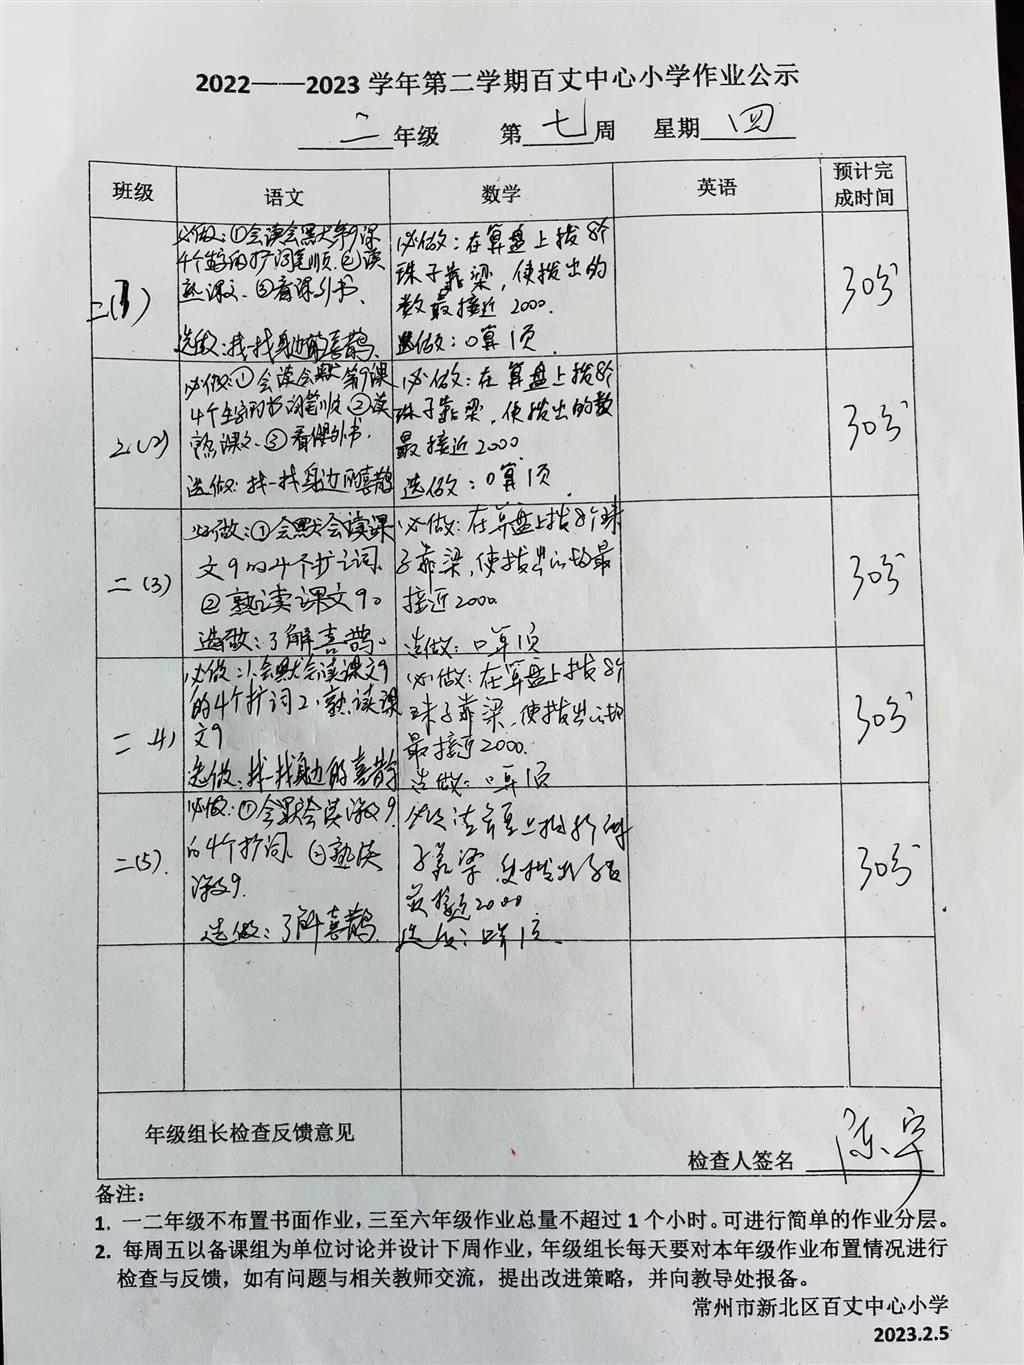 2022——2023 学年第二学期百丈中心小学作业公示
二 年级 第 七 周 星期 四
班级 语文 数学 英语 预计完
成时间
二(1)
必做:①会读会默大第9课
4个生字的扩词笔顺.②读
熟课文.③看课外书.
选做:找一找身边的喜鹊.
必做:在算盘上拨8个
珠子靠梁,使拨出的
数最接近2000.
选做:口算1页.
30分
二(2)
必做:①会读会默第9课
4个生字的扩词笔顺②读
熟课文.③看课外书.
选做:找一找身边的喜鹊
必做:在算盘上拨8个
珠子靠梁,使拨出的数
最接近2000.
选做:口算1页.
30分
二(3)
必做:①会默会读课
文9的4个扩词.
②熟读课文9。
选做:了解喜鹊。
必做:在算盘上拨8个珠
子靠梁,使拨出的最
接近2000
选做:口算1页
30分
二 4)
必做:1.会默会读课文9
的4个扩词2.熟读课
文9
选做:找一找身边的喜鹊
必做:在算盘上拨8个
珠子靠梁,使拨出的
最接近2000.
选做:口算1页
30分
二(5).
必做:①会默会读课文9.
的4个扩词.②熟读
课文9.
选做:了解喜鹊.
子靠梁
最接近2000
选做:口算1页.
30分
年级组长检查反馈意见
检查人签名 陈宇
备注:
1. 一二年级不布置书面作业,三至六年级作业总量不超过 1 个小时。可进行简单的作业分层。
2. 每周五以备课组为单位讨论并设计下周作业,年级组长每天要对本年级作业布置情况进行
检查与反馈,如有问题与相关教师交流,提出改进策略,并向教导处报备。
常州市新北区百丈中心小学
2023.2.5